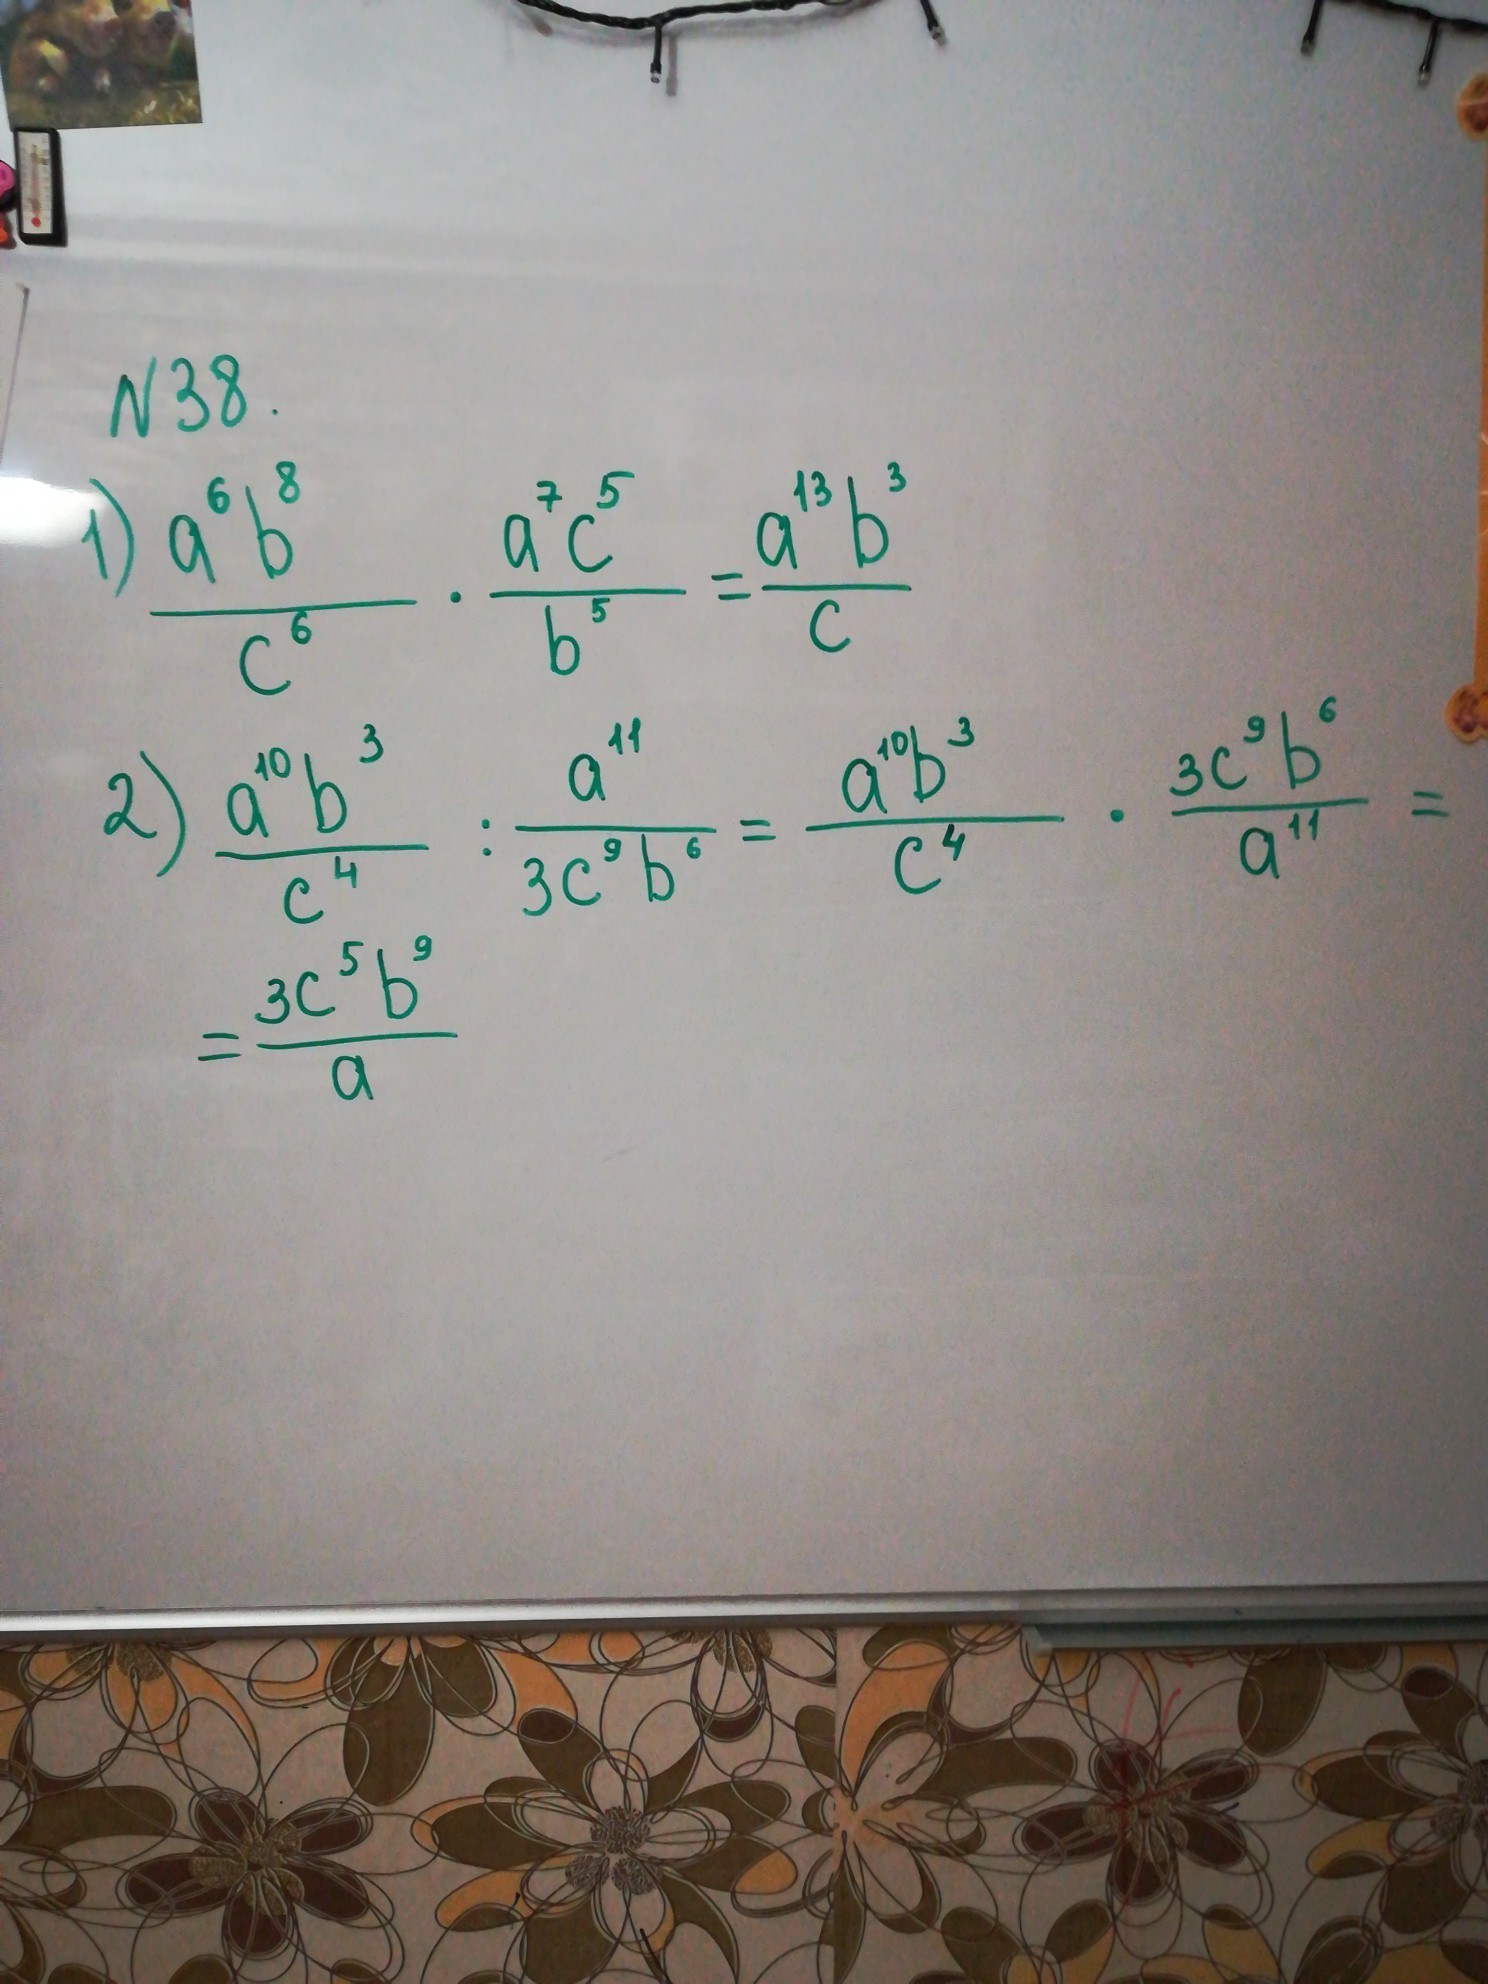 N38.
1) a⁶b⁸/c⁶ · a⁷c⁵/b⁵ = a¹³b³/c
2) a¹⁰b³/c⁴ : a¹¹/3c⁹b⁶ = a¹⁰b³/c⁴ · 3c⁹b⁶/a¹¹ =
= 3c⁵b⁹/a